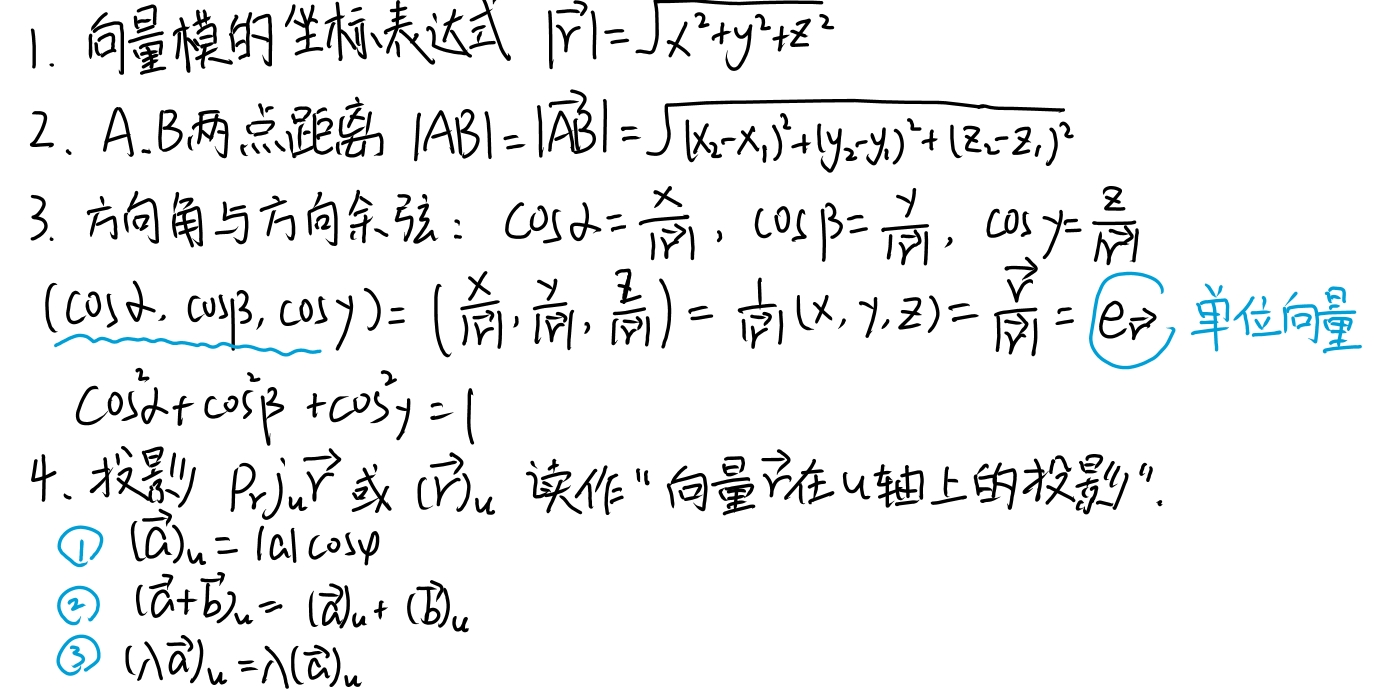 1. 向量模的坐标表达式 |r⃗|=√(x²+y²+z²)
2. A.B两点距离 |AB|=|AB⃗|=√((x₂-x₁)²+(y₂-y₁)²+(z₂-z₁)²)
3. 方向角与方向余弦: cosα=x/|r⃗|, cosβ=y/|r⃗|, cosγ=z/|r⃗|
(cosα, cosβ, cosγ)=(x/|r⃗|, y/|r⃗|, z/|r⃗|)=1/|r⃗|(x, y, z)=r⃗/|r⃗|=e_r⃗, 单位向量
cos²α+cos²β+cos²γ=1
4. 投影 Prjᵤr⃗ 或 (r⃗)ᵤ 读作“向量r⃗在u轴上的投影”.
① (a⃗)ᵤ=|a|cosφ
② (a⃗+b⃗)ᵤ=(a⃗)ᵤ+(b⃗)ᵤ
③ (λa⃗)ᵤ=λ(a⃗)ᵤ